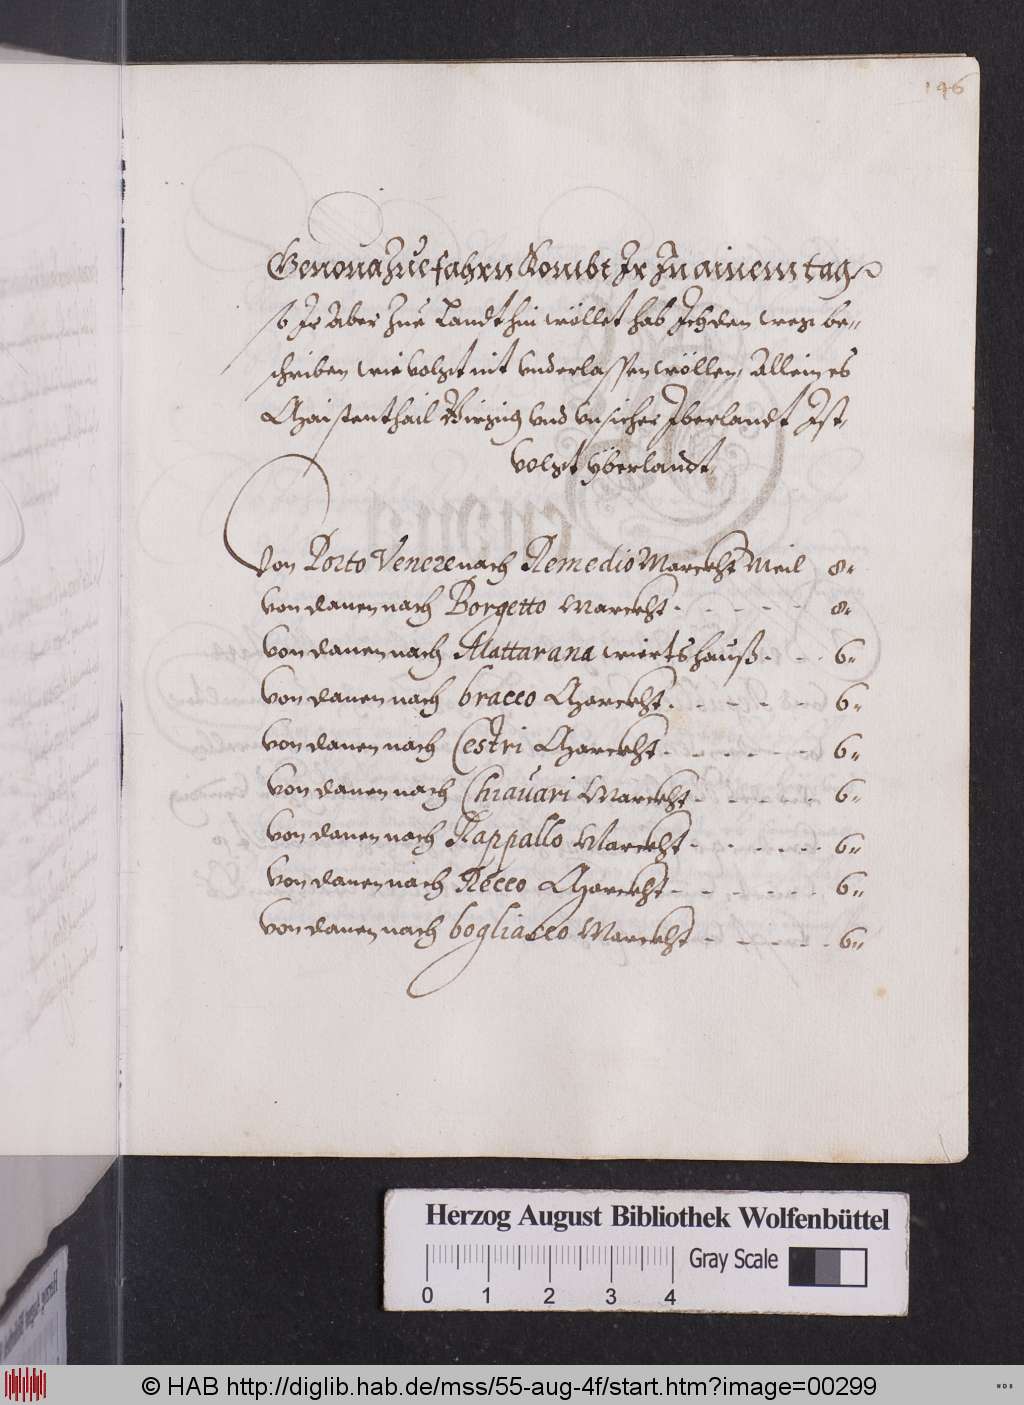 146
Genona Zue fahrn Kombt Ir In ainem tag
so Ir Aber Zue Landt hin wöllet hab Ich den weg be-
schriben wie volgt nit vnderlassen wöllen, Allein es
Maistenthail Birgig vnd vnsicher Iberlandt Ist,
volgt yberlandt,
Von Porto Venere nach Remedio Marckht Meil 8.
von danen nach Borgetto Marckht - - - - - - 8.
von danen nach Mattarana wiertshauß - - - 6.
von danen nach bracco Marckht - - - - - - 6.
von danen nach Cestri Marckht - - - - - - 6.
von danen nach Chiauari Marckht - - - - - - 6.
von danen nach Rappallo Marckht - - - - - - 6.
von danen nach Recco Marckht - - - - - - 6.
von danen nach bogliasco Marckht - - - - - - 6.
Herzog August Bibliothek Wolfenbüttel
Gray Scale
0 1 2 3 4
© HAB http://diglib.hab.de/mss/55-aug-4f/start.htm?image=00299